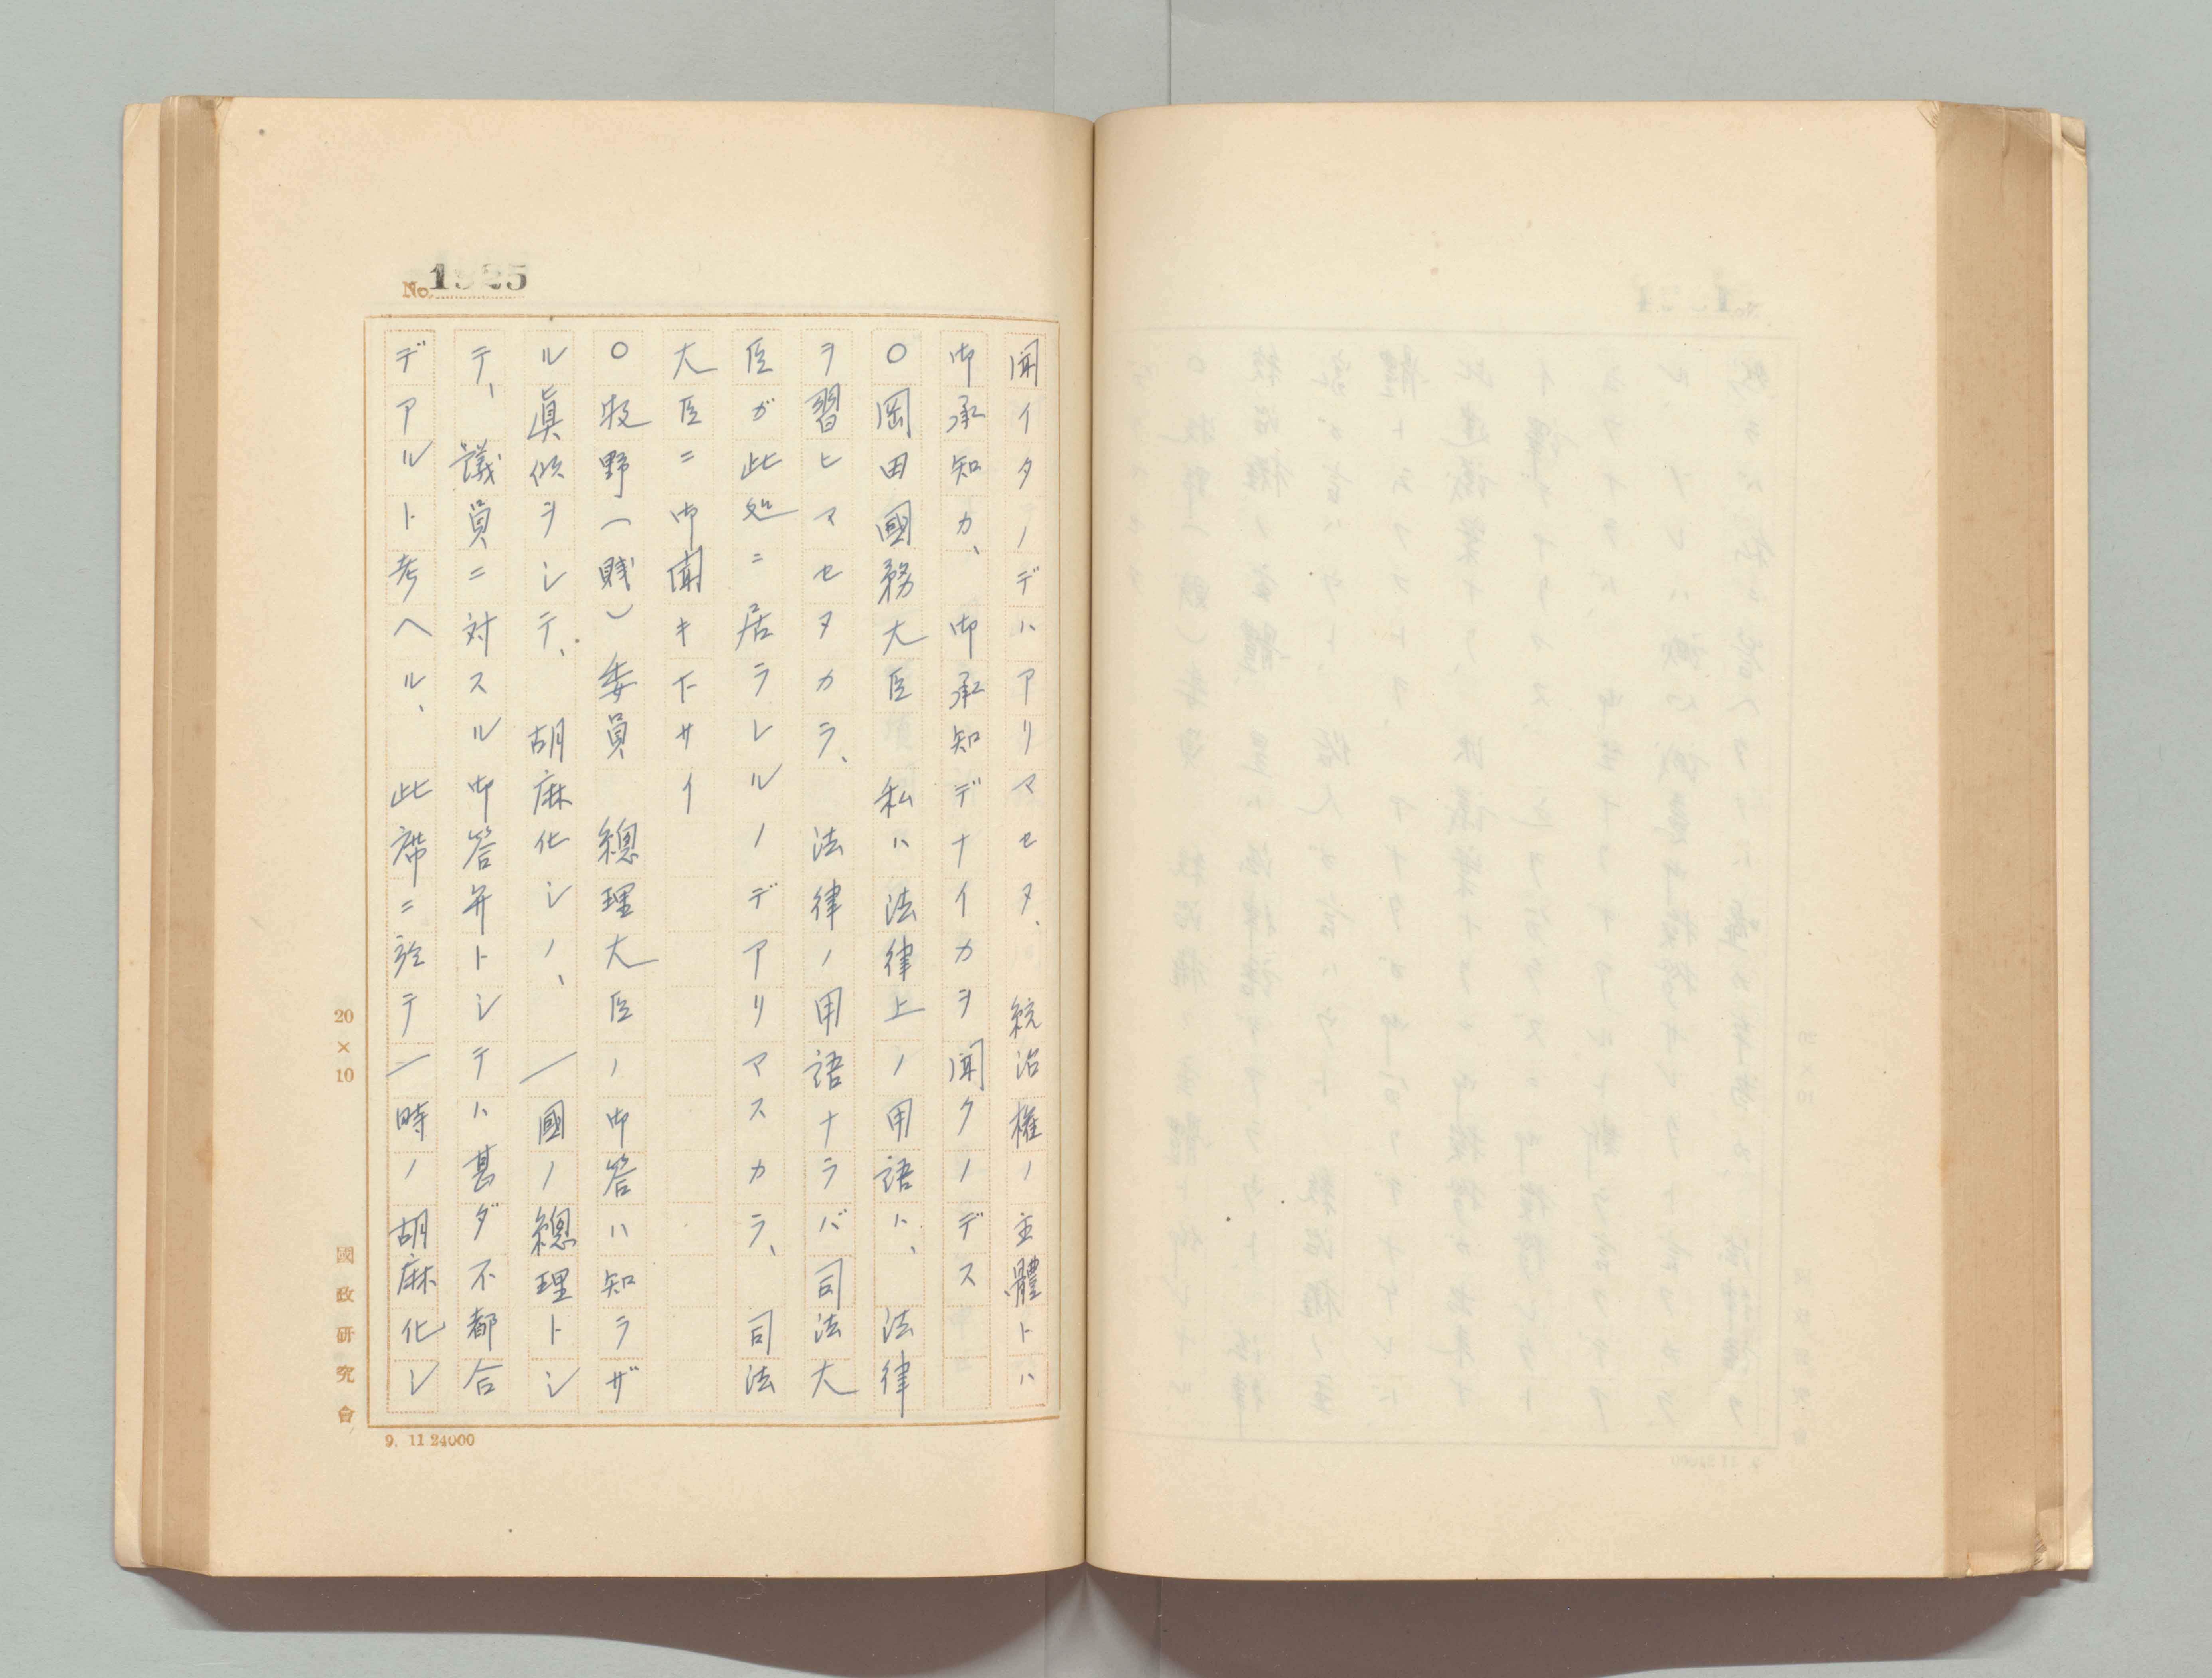 No. 1925
聞イタノデハアリマセヌ、統治權ノ主體トハ
御承知カ、御承知デナイカヲ聞クノデス
○岡田國務大臣 私ハ法律上ノ用語ハ、法律
ヲ習ヒマセヌカラ、法律ノ用語ナラバ司法大
臣ガ此処ニ居ラレルノデアリマスカラ、司法
大臣ニ御聞キ下サイ
○牧野(賤)委員 總理大臣ノ御答ハ知ラザ
ル眞似ヲシテ、胡麻化シノ、一國ノ總理トシ
テ、議員ニ対スル御答弁トシテハ甚ダ不都合
デアルト考ヘル、此席ニ於テ一時ノ胡麻化シ
20×10
國政研究會
9. 11 24000